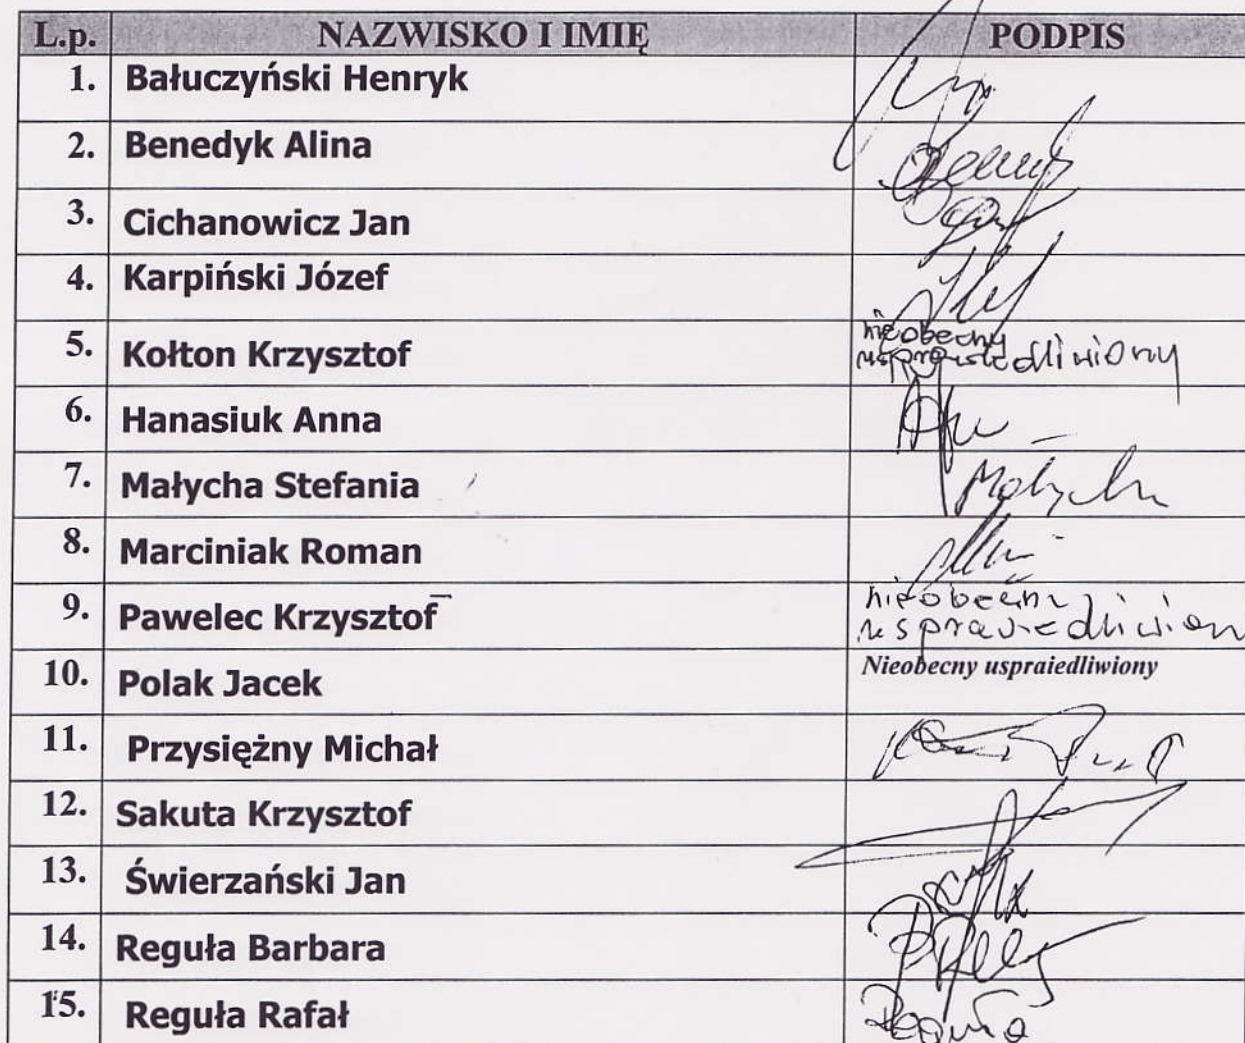 L.p. NAZWISKO I IMIĘ PODPIS
1. Bałuczyński Henryk
2. Benedyk Alina
3. Cichanowicz Jan
4. Karpiński Józef
5. Kołton Krzysztof nieobecny
usprawiedliwiony
6. Hanasiuk Anna
7. Małycha Stefania Małycha
8. Marciniak Roman
9. Pawelec Krzysztof nieobecny
usprawiedliwion
10. Polak Jacek Nieobecny uspraiedliwiony
11. Przysiężny Michał
12. Sakuta Krzysztof
13. Świerzański Jan
14. Reguła Barbara
15. Reguła Rafał Reguła